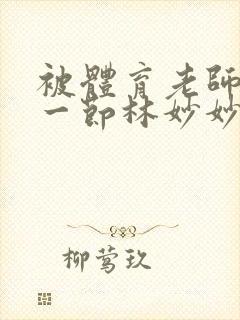 被體育老師
一節林妙妙
柳莺玖